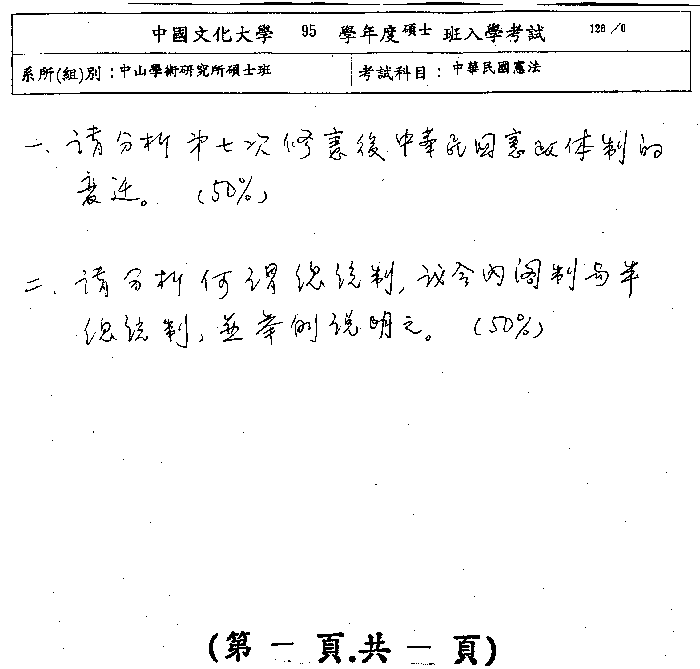 中國文化大學 95 學年度碩士班入學考試 128/0
系所(組)別：中山學術研究所碩士班 考試科目：中華民國憲法
一、請分析第七次修憲後中華民国憲政体制的
變迁。(50%)
二、請分析何謂總統制,議会內閣制与半
總統制,並举例說明之。(50%)
(第一頁.共一頁)